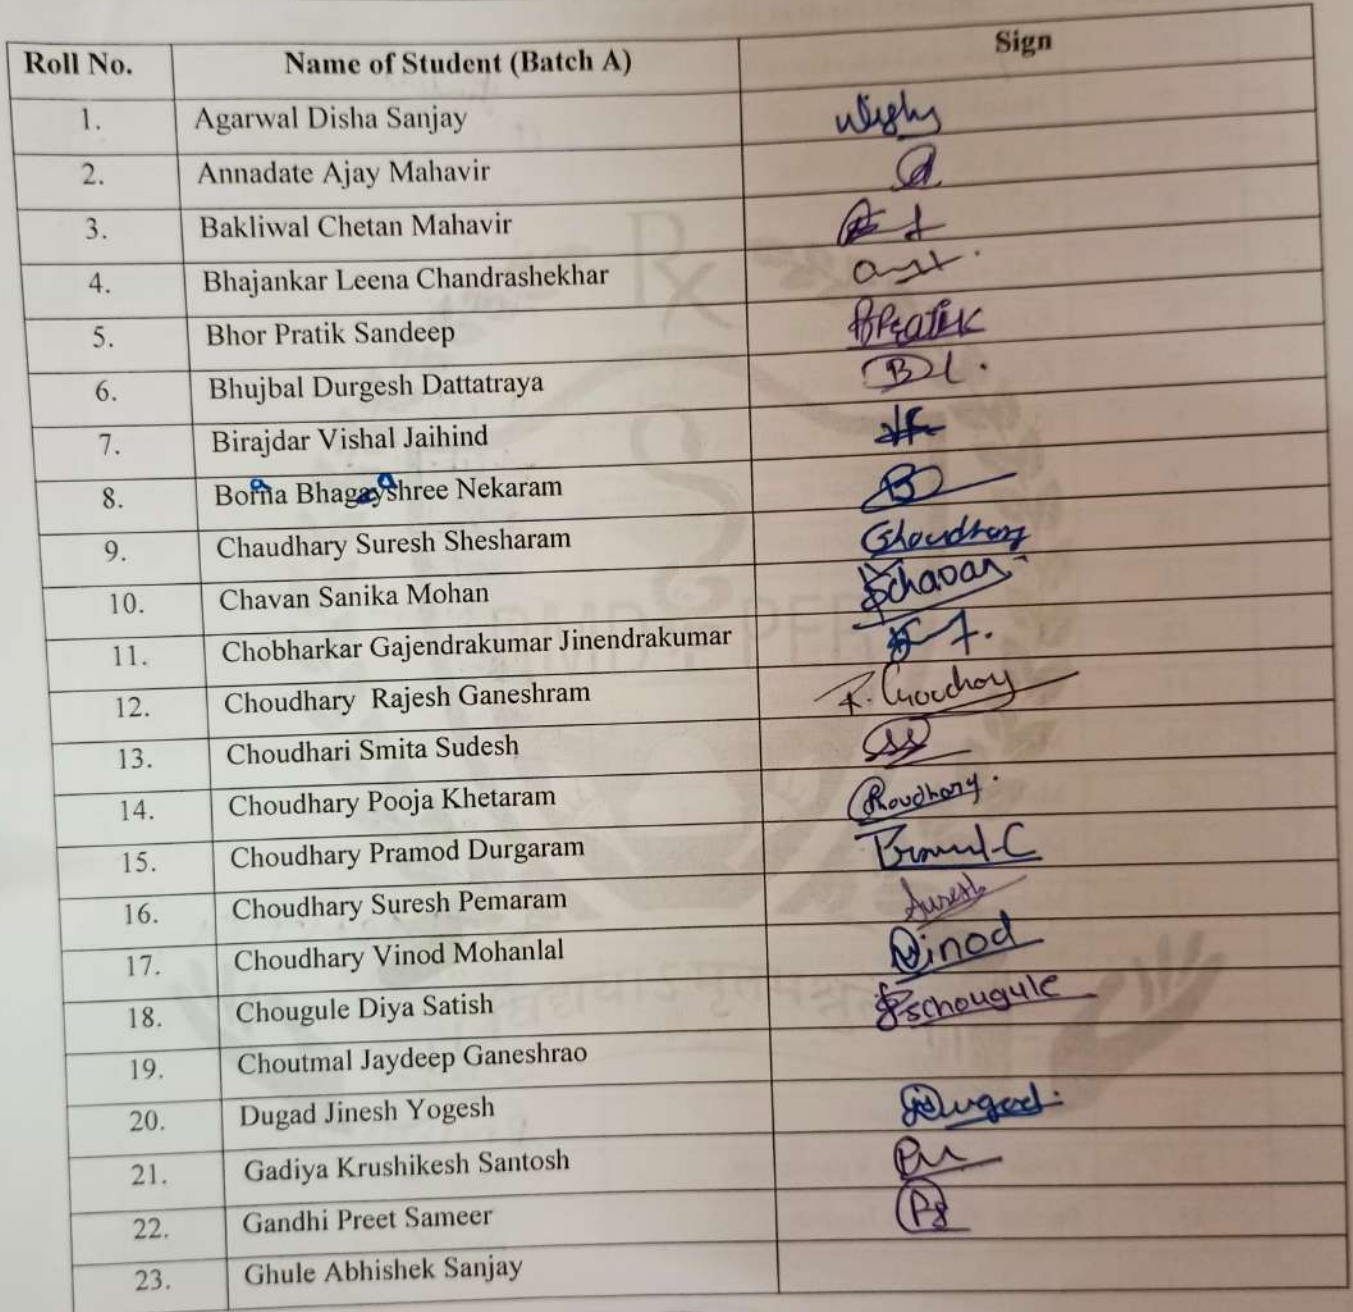 Roll No. Name of Student (Batch A) Sign
1. Agarwal Disha Sanjay
2. Annadate Ajay Mahavir
3. Bakliwal Chetan Mahavir
4. Bhajankar Leena Chandrashekhar
5. Bhor Pratik Sandeep BPratik
6. Bhujbal Durgesh Dattatraya
7. Birajdar Vishal Jaihind
8. Borna Bhagayshree Nekaram B
9. Chaudhary Suresh Shesharam Choudhary
10. Chavan Sanika Mohan Schavan
11. Chobharkar Gajendrakumar Jinendrakumar
12. Choudhary Rajesh Ganeshram R. Choudhary
13. Choudhari Smita Sudesh
14. Choudhary Pooja Khetaram Choudhary.
15. Choudhary Pramod Durgaram
16. Choudhary Suresh Pemaram Suresh
17. Choudhary Vinod Mohanlal Vinod
18. Chougule Diya Satish schougule
19. Choutmal Jaydeep Ganeshrao
20. Dugad Jinesh Yogesh Dugad.
21. Gadiya Krushikesh Santosh
22. Gandhi Preet Sameer
23. Ghule Abhishek Sanjay